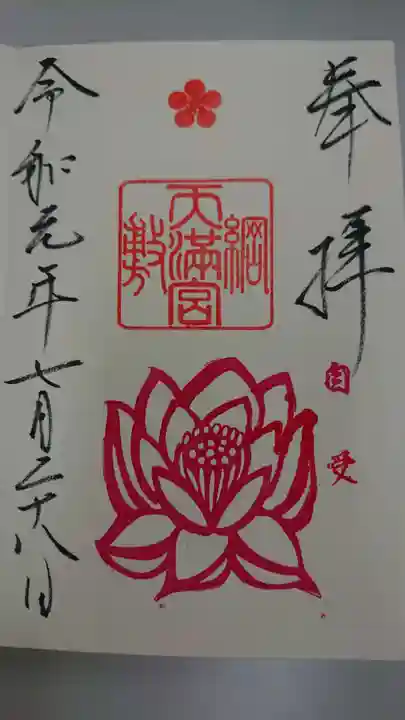 奉拝
綱
天満宮
敷
自受
令和元年七月二十八日